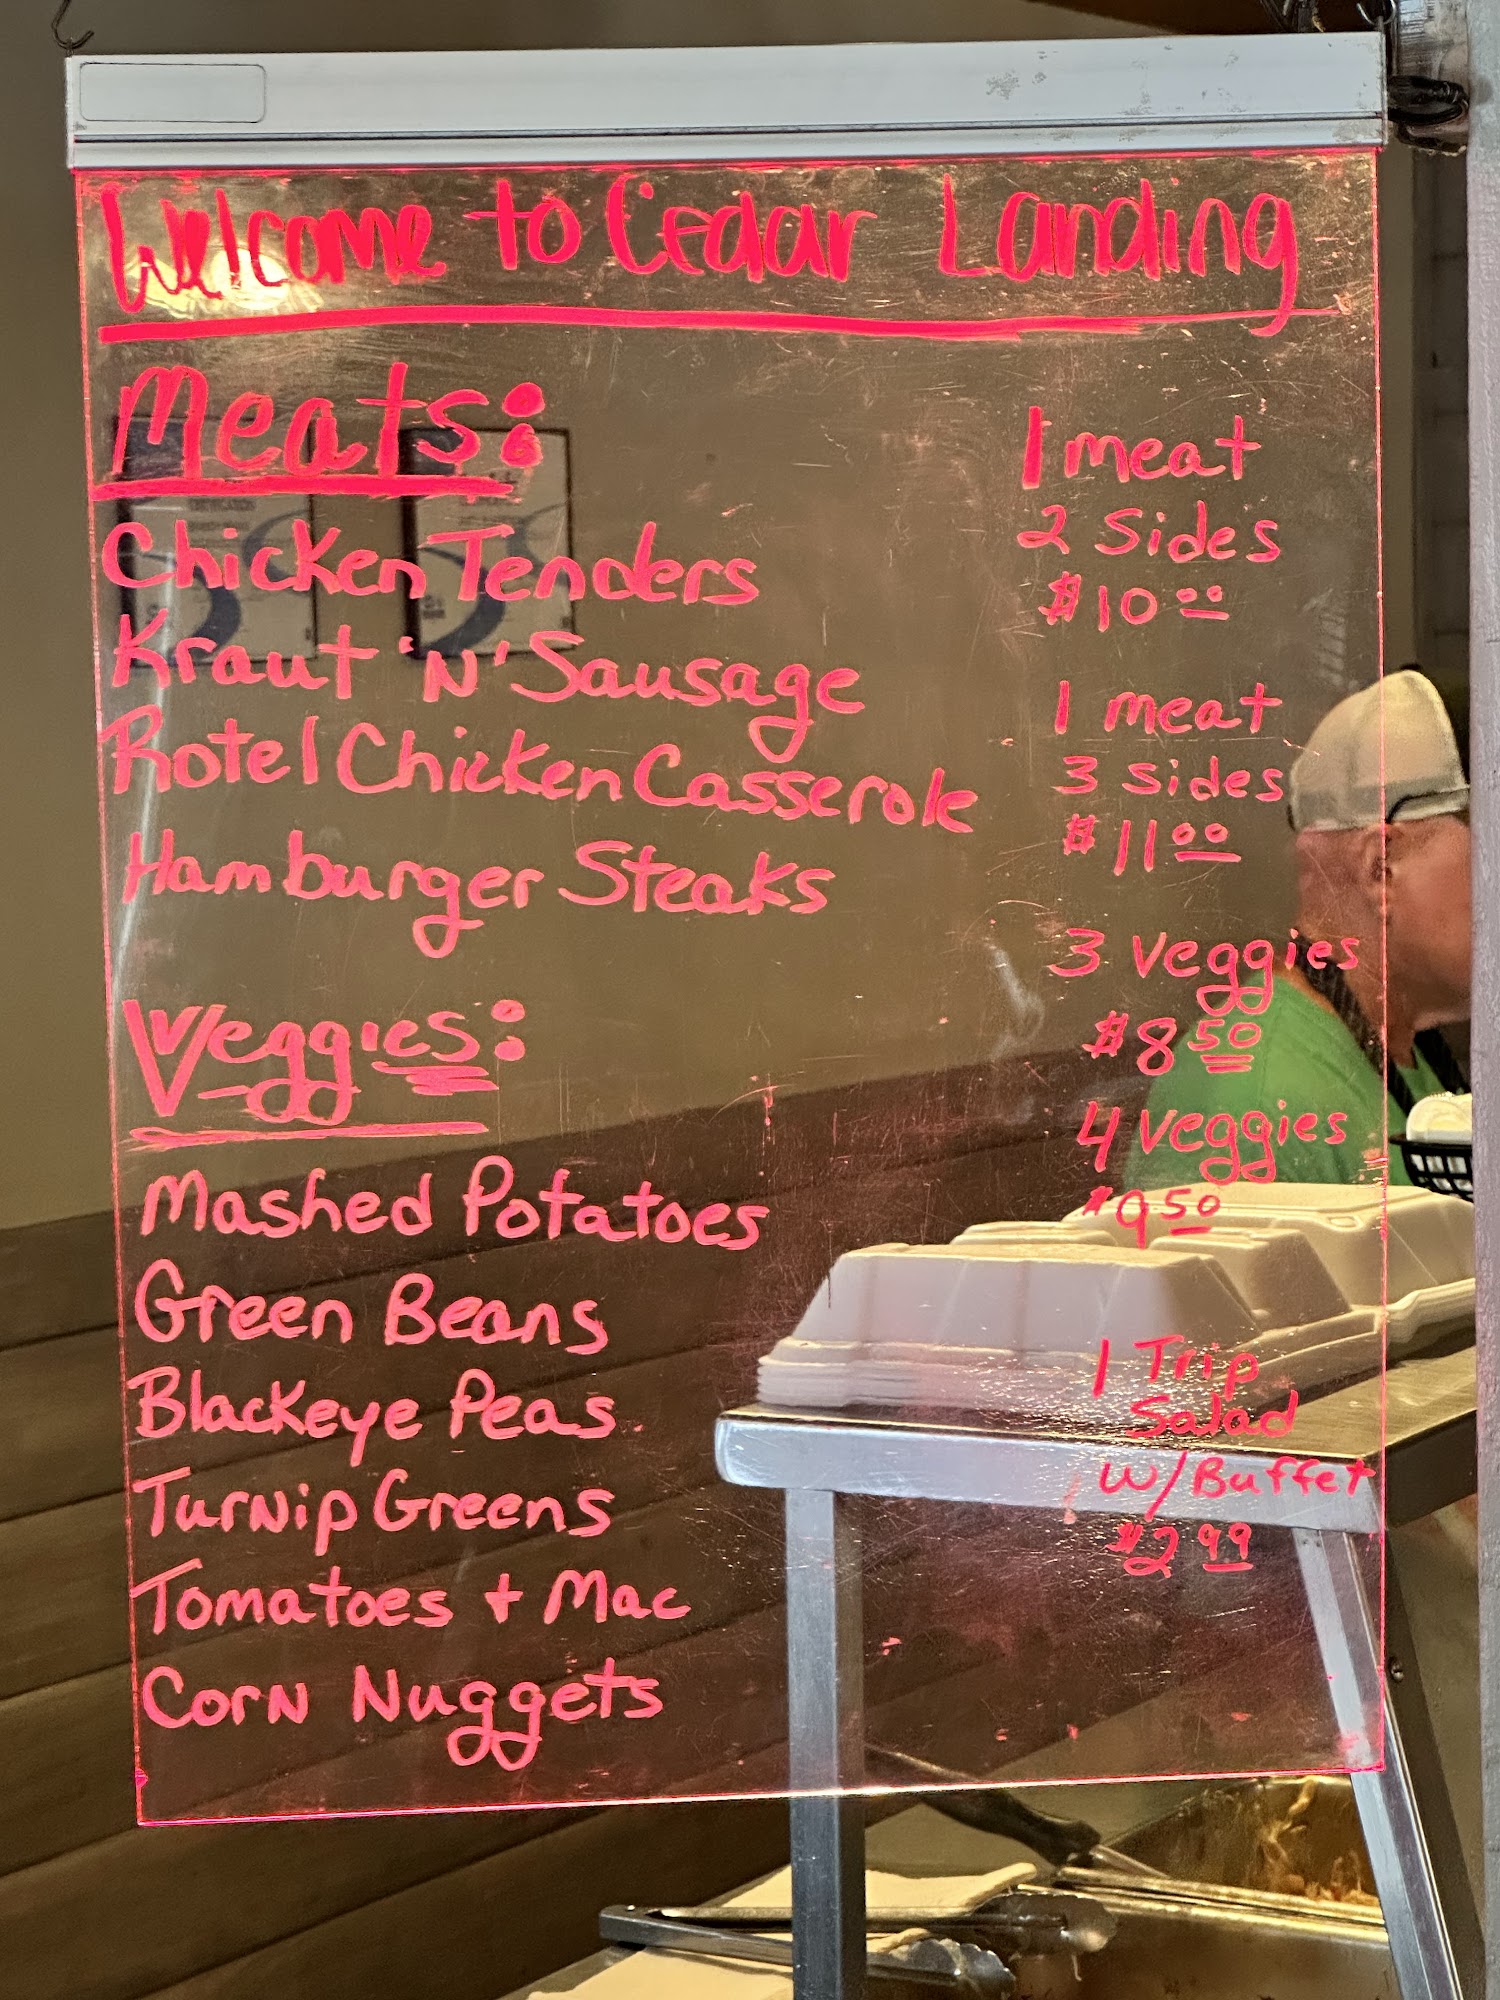 Welcome to Cedar Landing
Meats:
Chicken Tenders
Kraut 'N' Sausage
Rotel Chicken Casserole
Hamburger Steaks
Veggies:
Mashed Potatoes
Green Beans
Blackeye Peas
Turnip Greens
Tomatoes + Mac
Corn Nuggets
1 meat
2 Sides
$10.00
1 meat
3 sides
$11.00
3 Veggies
$8.50
4 Veggies
$9.50
1 Trip
Salad
w/Buffet
$2.99